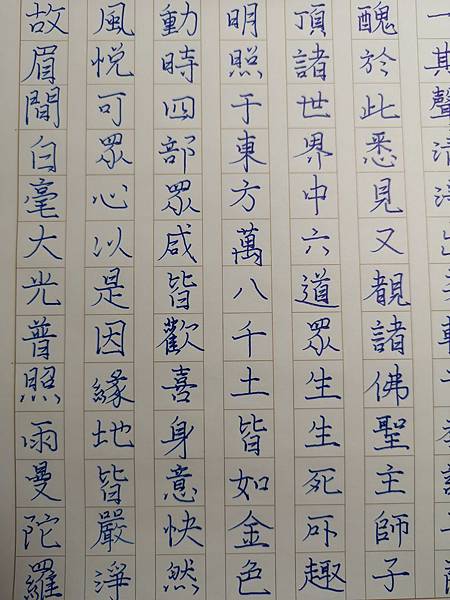 故眉間白毫大光普照雨曼陀羅
風悅可眾心以是因緣地皆嚴淨
動時四部眾咸皆歡喜身意快然
明照于東方萬八千土皆如金色
頂諸世界中六道眾生生死所趣
醜於此悉見又覩諸佛聖主師子
一其聲清